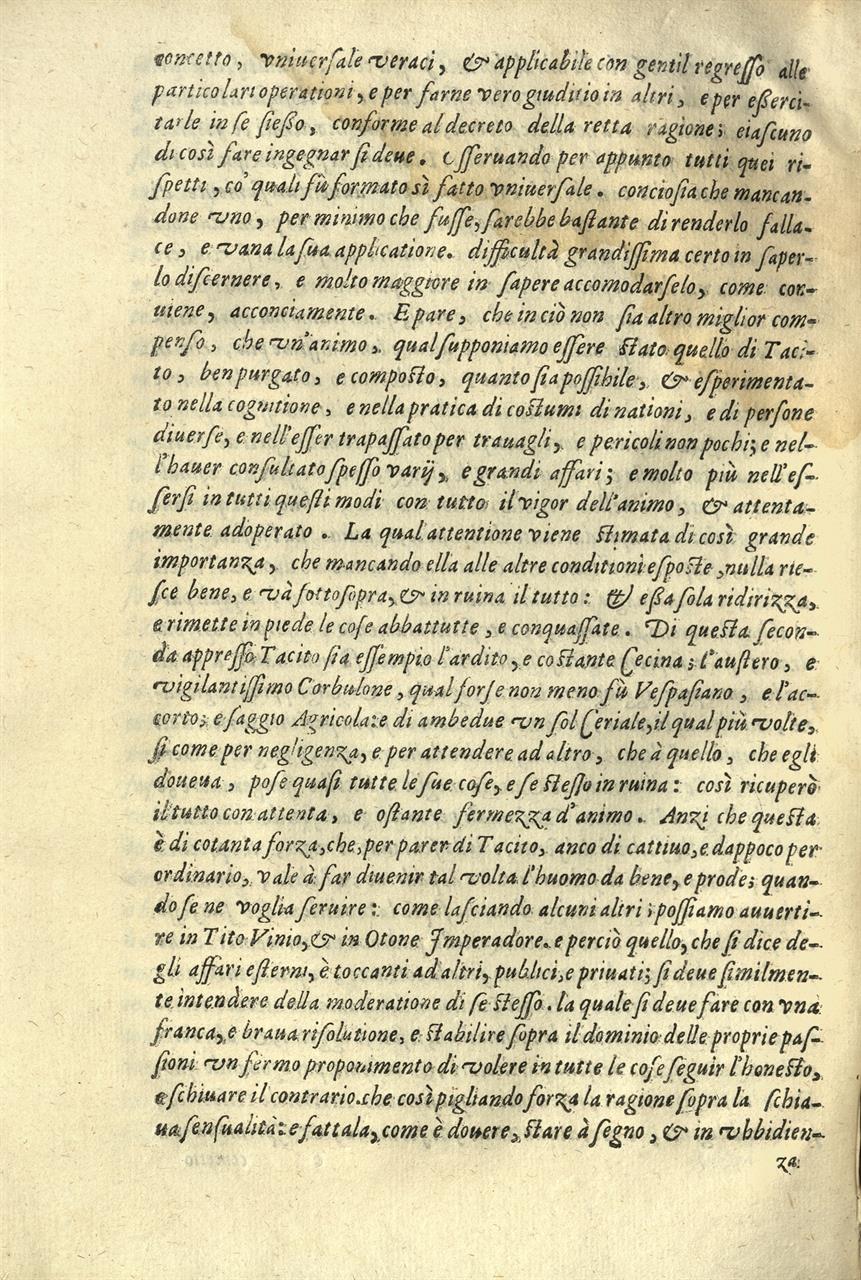 concetto, vniuersale veraci, & applicabile con gentil regresso alle
particolari operationi, e per farne vero giuditio in altri, e per eßerci-
tarle in se steßo, conforme al decreto della retta ragione; ciascuno
di così fare ingegnar si deue. Osseruando per appunto tutti quei ri-
spetti, co' quali fù formato sì fatto vniuersale. conciosia che mancan-
done vno, per minimo che fusse, sarebbe bastante di renderlo falla-
ce, e vana la sua applicatione. difficultà grandissima certo in saper-
lo discernere, e molto maggiore in sapere accomodarselo, come con-
uiene, acconciamente. E pare, che in ciò non sia altro miglior com-
penso, che vn'animo, qual supponiamo essere stato quello di Taci-
to, ben purgato, e composto, quanto sia possibile, & esperimenta-
to nella cognitione, e nella pratica di costumi di nationi, e di persone
diuerse, e nell'esser trapassato per trauagli, e pericoli non pochi; e nel-
l'hauer consultato spesso varij, e grandi affari; e molto più nell'es-
sersi in tutti questi modi con tutto il vigor dell'animo, & attenta-
mente adoperato. La qual'attentione viene stimata di così grande
importanza, che mancando ella alle altre conditioni esposte, nulla rie-
sce bene, e và sottosopra, & in ruina il tutto: & eßa sola ridirizza,
e rimette in piede le cose abbattutte, e conquassate. Di questa secon-
da appresso Tacito sia essempio l'ardito, e costante Cecina; l'austero, e
vigilantissimo Corbulone, qual forse non meno fù Vespasiano, e l'ac-
corto; e saggio Agricola: e di ambedue vn sol Ceriale, il qual più volte,
si come per negligenza, e per attendere ad altro, che à quello, che egli
doueua, pose quasi tutte le sue cose, e se stesso in ruina: così ricuperò
il tutto con attenta, e ostante fermezza d'animo. Anzi che questa
è di cotanta forza, che, per parer di Tacito, anco di cattiuo, e dappoco per
ordinario, vale à far diuenir tal volta l'huomo da bene, e prode; quan-
do se ne voglia seruire: come lasciando alcuni altri; possiamo auuerti-
re in Tito Vinio, & in Otone Imperadore. e perciò quello, che si dice de-
gli affari esterni, è toccanti ad altri, publici, e priuati; si deue similmen-
te intendere della moderatione di se stesso. la quale si deue fare con vna
franca, e braua risolutione, e stabilire sopra il dominio delle proprie pas-
sioni vn fermo proponimento di volere in tutte le cose seguir l'honesto,
e schiuare il contrario. che così pigliando forza la ragione sopra la schia-
ua sensualità: e fattala, come è douere, stare à segno, & in vbbidien-
za.